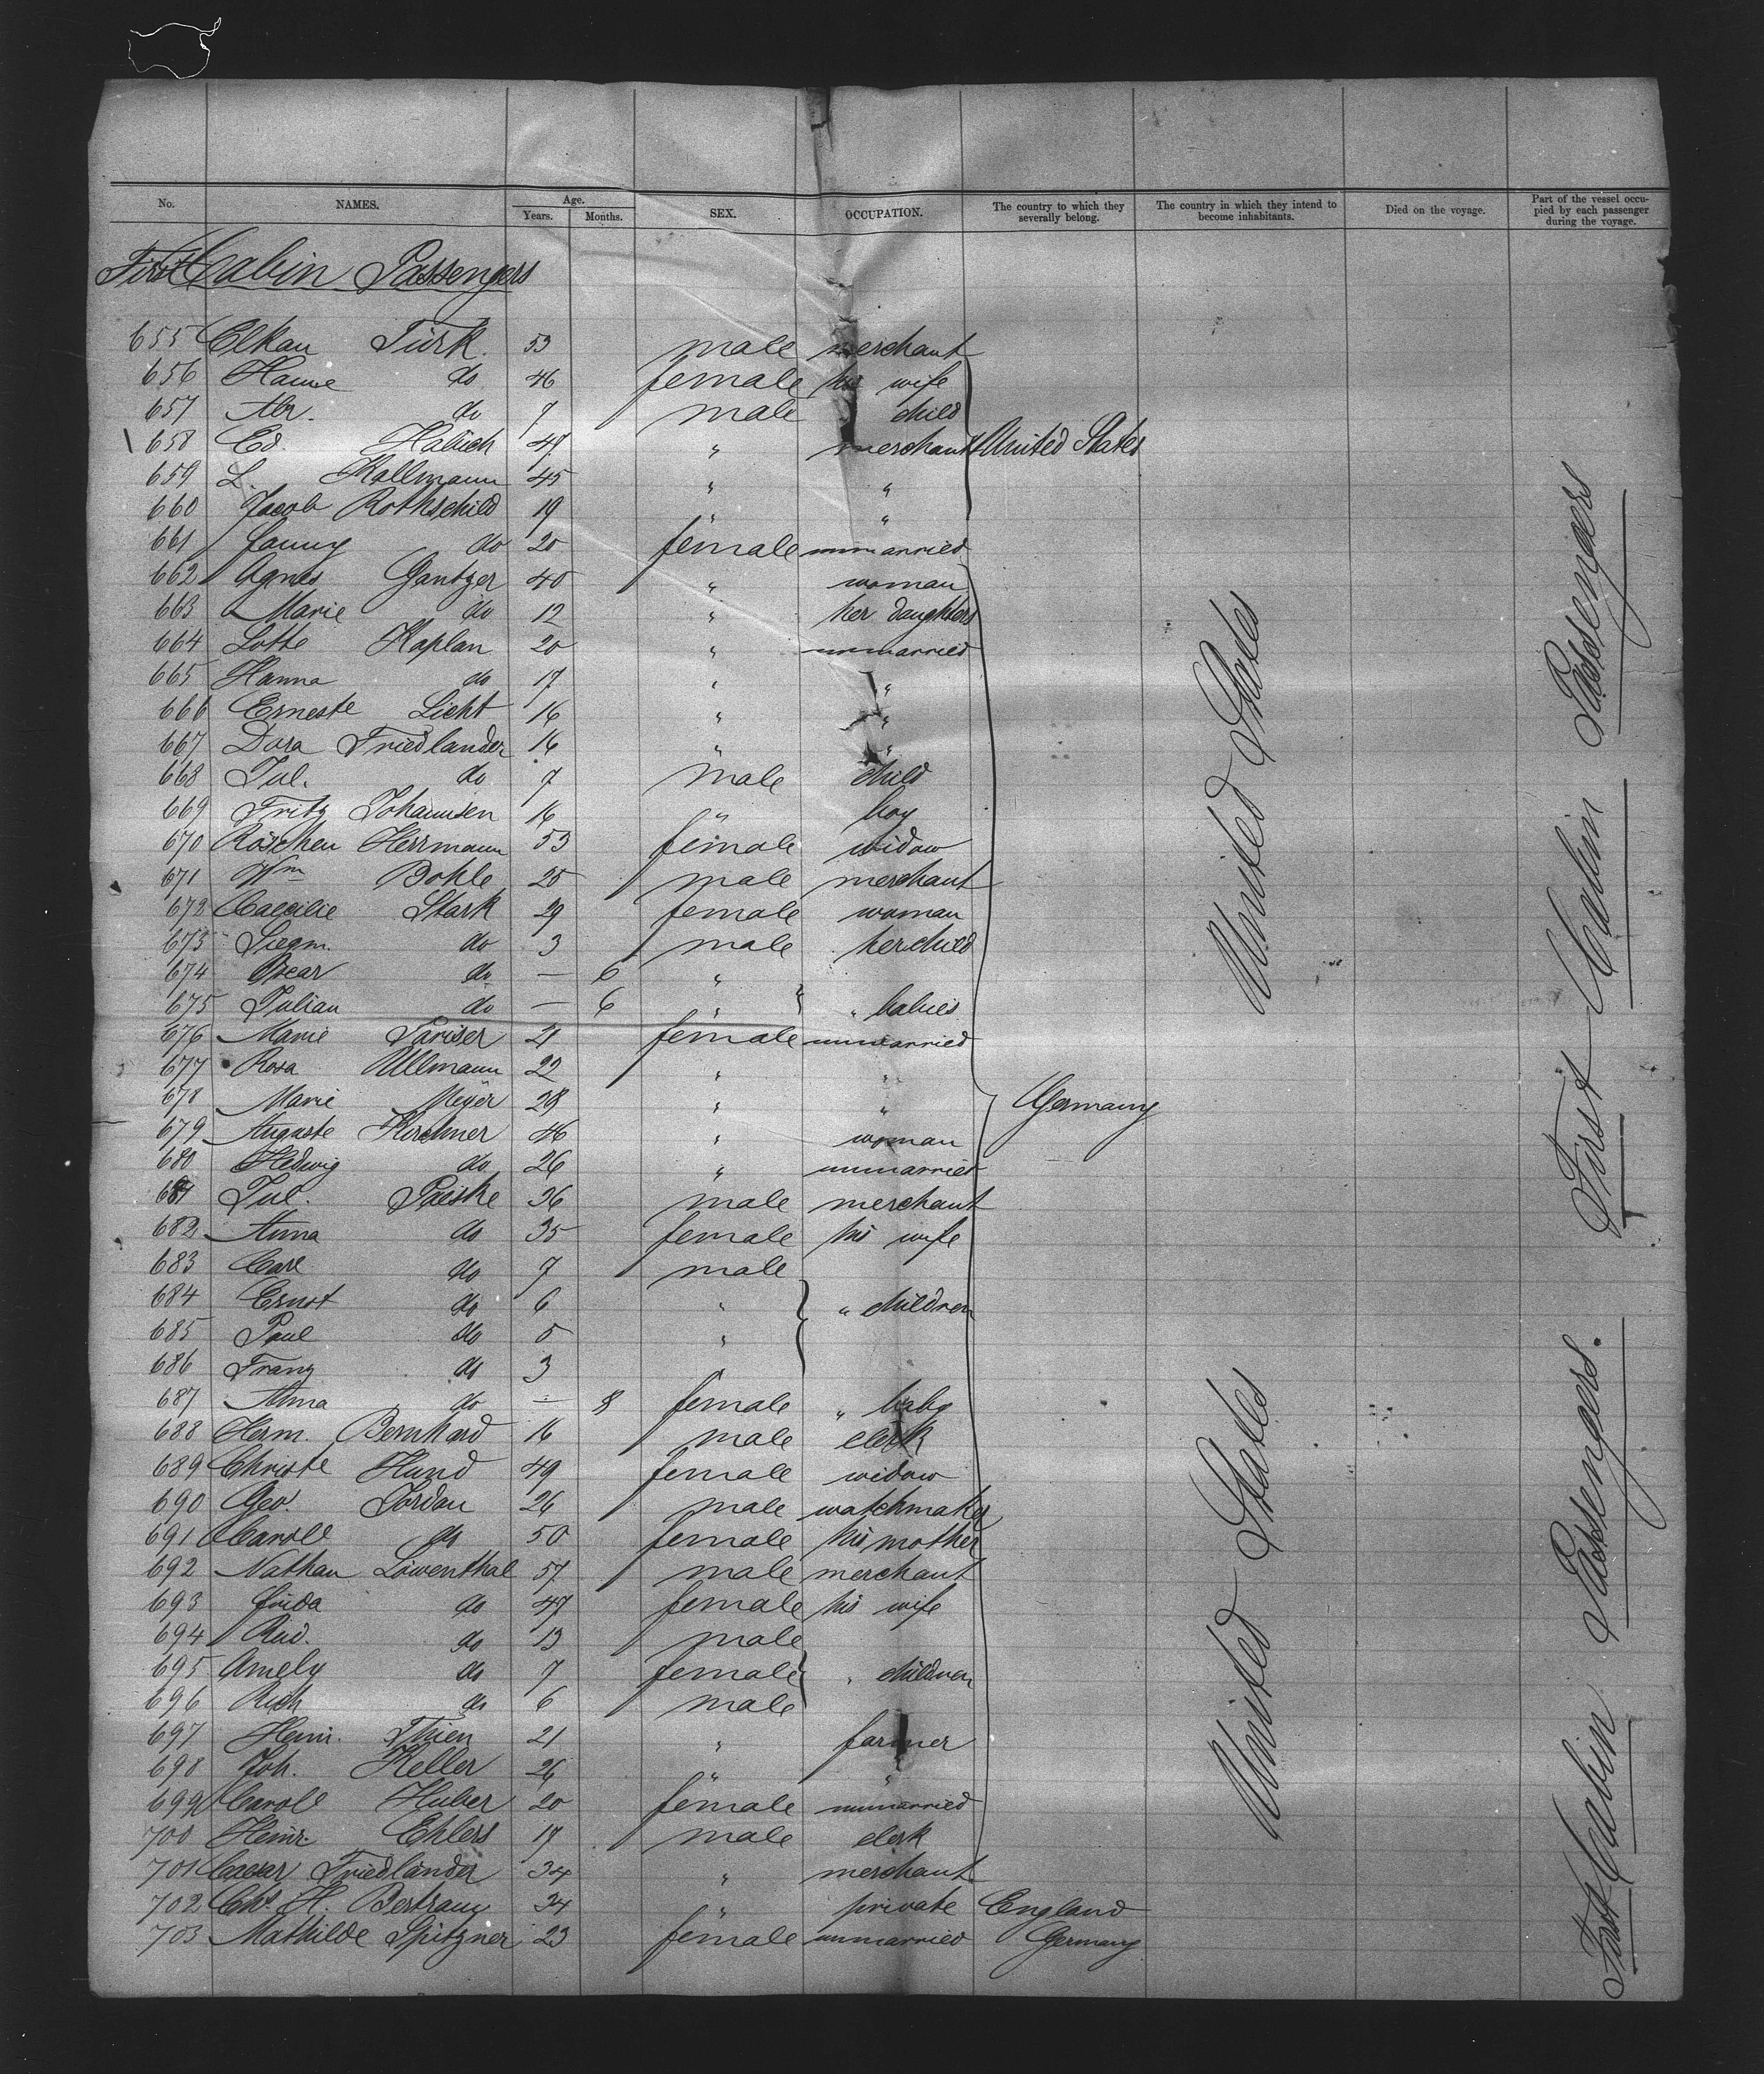 No. NAMES. Age. Years. Months. SEX. OCCUPATION. The country to which they severally belong. The country in which they intend to become inhabitants. Died on the voyage. Part of the vessel occupied by each passenger during the voyage.
First Cabin Passengers
655 Elkan Türk 53 male merchant
656 do 46 female his wife
657 Abr. do 7 male child
658 Ed. 47 " merchant United States
659 L. Kallmann 45 " "
660 Jacob Rothschild 19 " "
661 Fanny do 20 female unmarried
662 Agnes Gantzer 40 " woman
663 Marie do 12 " her daughters
664 Lotte Kaplan 20 " unmarried
665 Hanna do 17 " "
666 Erneste Licht 16 " "
667 Dora Friedlander 16 " "
668 Jul. do 7 male child
669 Fritz Johannsen 16 " boy
670 Röschen Herrmann 53 female widow
671 Wm Bohle 25 male merchant
672 Caecilie Stark 29 female woman
673 Siegm. do 3 male her child
674 Oscar do — 6 "
675 Julian do — 6 " " babies
676 Marie Pariser 21 female unmarried
677 Rosa Ullmann 22 " "
678 Marie Meÿer 28 " " Germany
679 Auguste Kirchner 46 " woman
680 Hedwig do 26 " unmarried
681 Jul. 36 male merchant
682 Anna do 35 female his wife
683 Carl do 7 male
684 Ernst do 6 " " children
685 Paul do 5 "
686 Franz do 3 "
687 Anna do — 8 female " baby
688 Herm. Bernhard 16 male clerk
689 Christe Hund 49 female widow
690 Geo. Jordan 26 male watchmaker
691 Carole do 50 female his mother
692 Nathan Löwenthal 57 male merchant
693 do 47 female his wife
694 Rud. do 13 male
695 Amely do 7 female " children
696 Rich do 6 male
697 Heinr. Thien 21 " farmer
698 Joh. Keller 26 " "
699 Carole Huber 20 female unmarried
700 Heinr. Ehlers 17 male clerk
701 Caesar Friedländer 34 " merchant
702 Chs. H. Bertram 34 " private England
703 Mathilde Spitzner 23 female unmarried Germany
United States
United States
First Cabin Passengers
First Cabin Passengers.